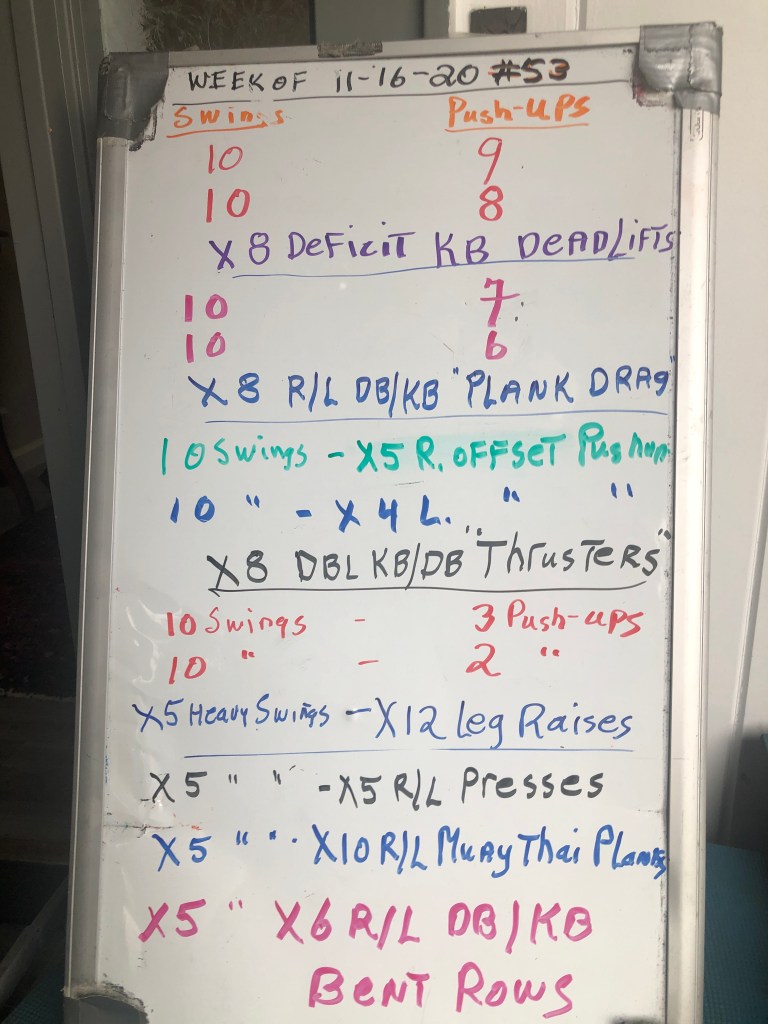 WEEK OF 11-16-20 #53
Swings Push-UPS
10 9
10 8
X8 DeFiciT KB DEADLIFTS
10 7
10 6
X8 R/L DB/KB "PLANK DRAg"
10 Swings - X5 R. OFFSET Pushup
10 " - X4 L. " "
X8 DBL KB/DB "ThrusTERS"
10 Swings - 3 Push-ups
10 " - 2 "
X5 Heavy Swings - X12 Leg Raises
X5 " " - X5 R/L Presses
X5 " " - X10 R/L Muay Thai Planks
X5 " X6 R/L DB/KB
BENT ROWS